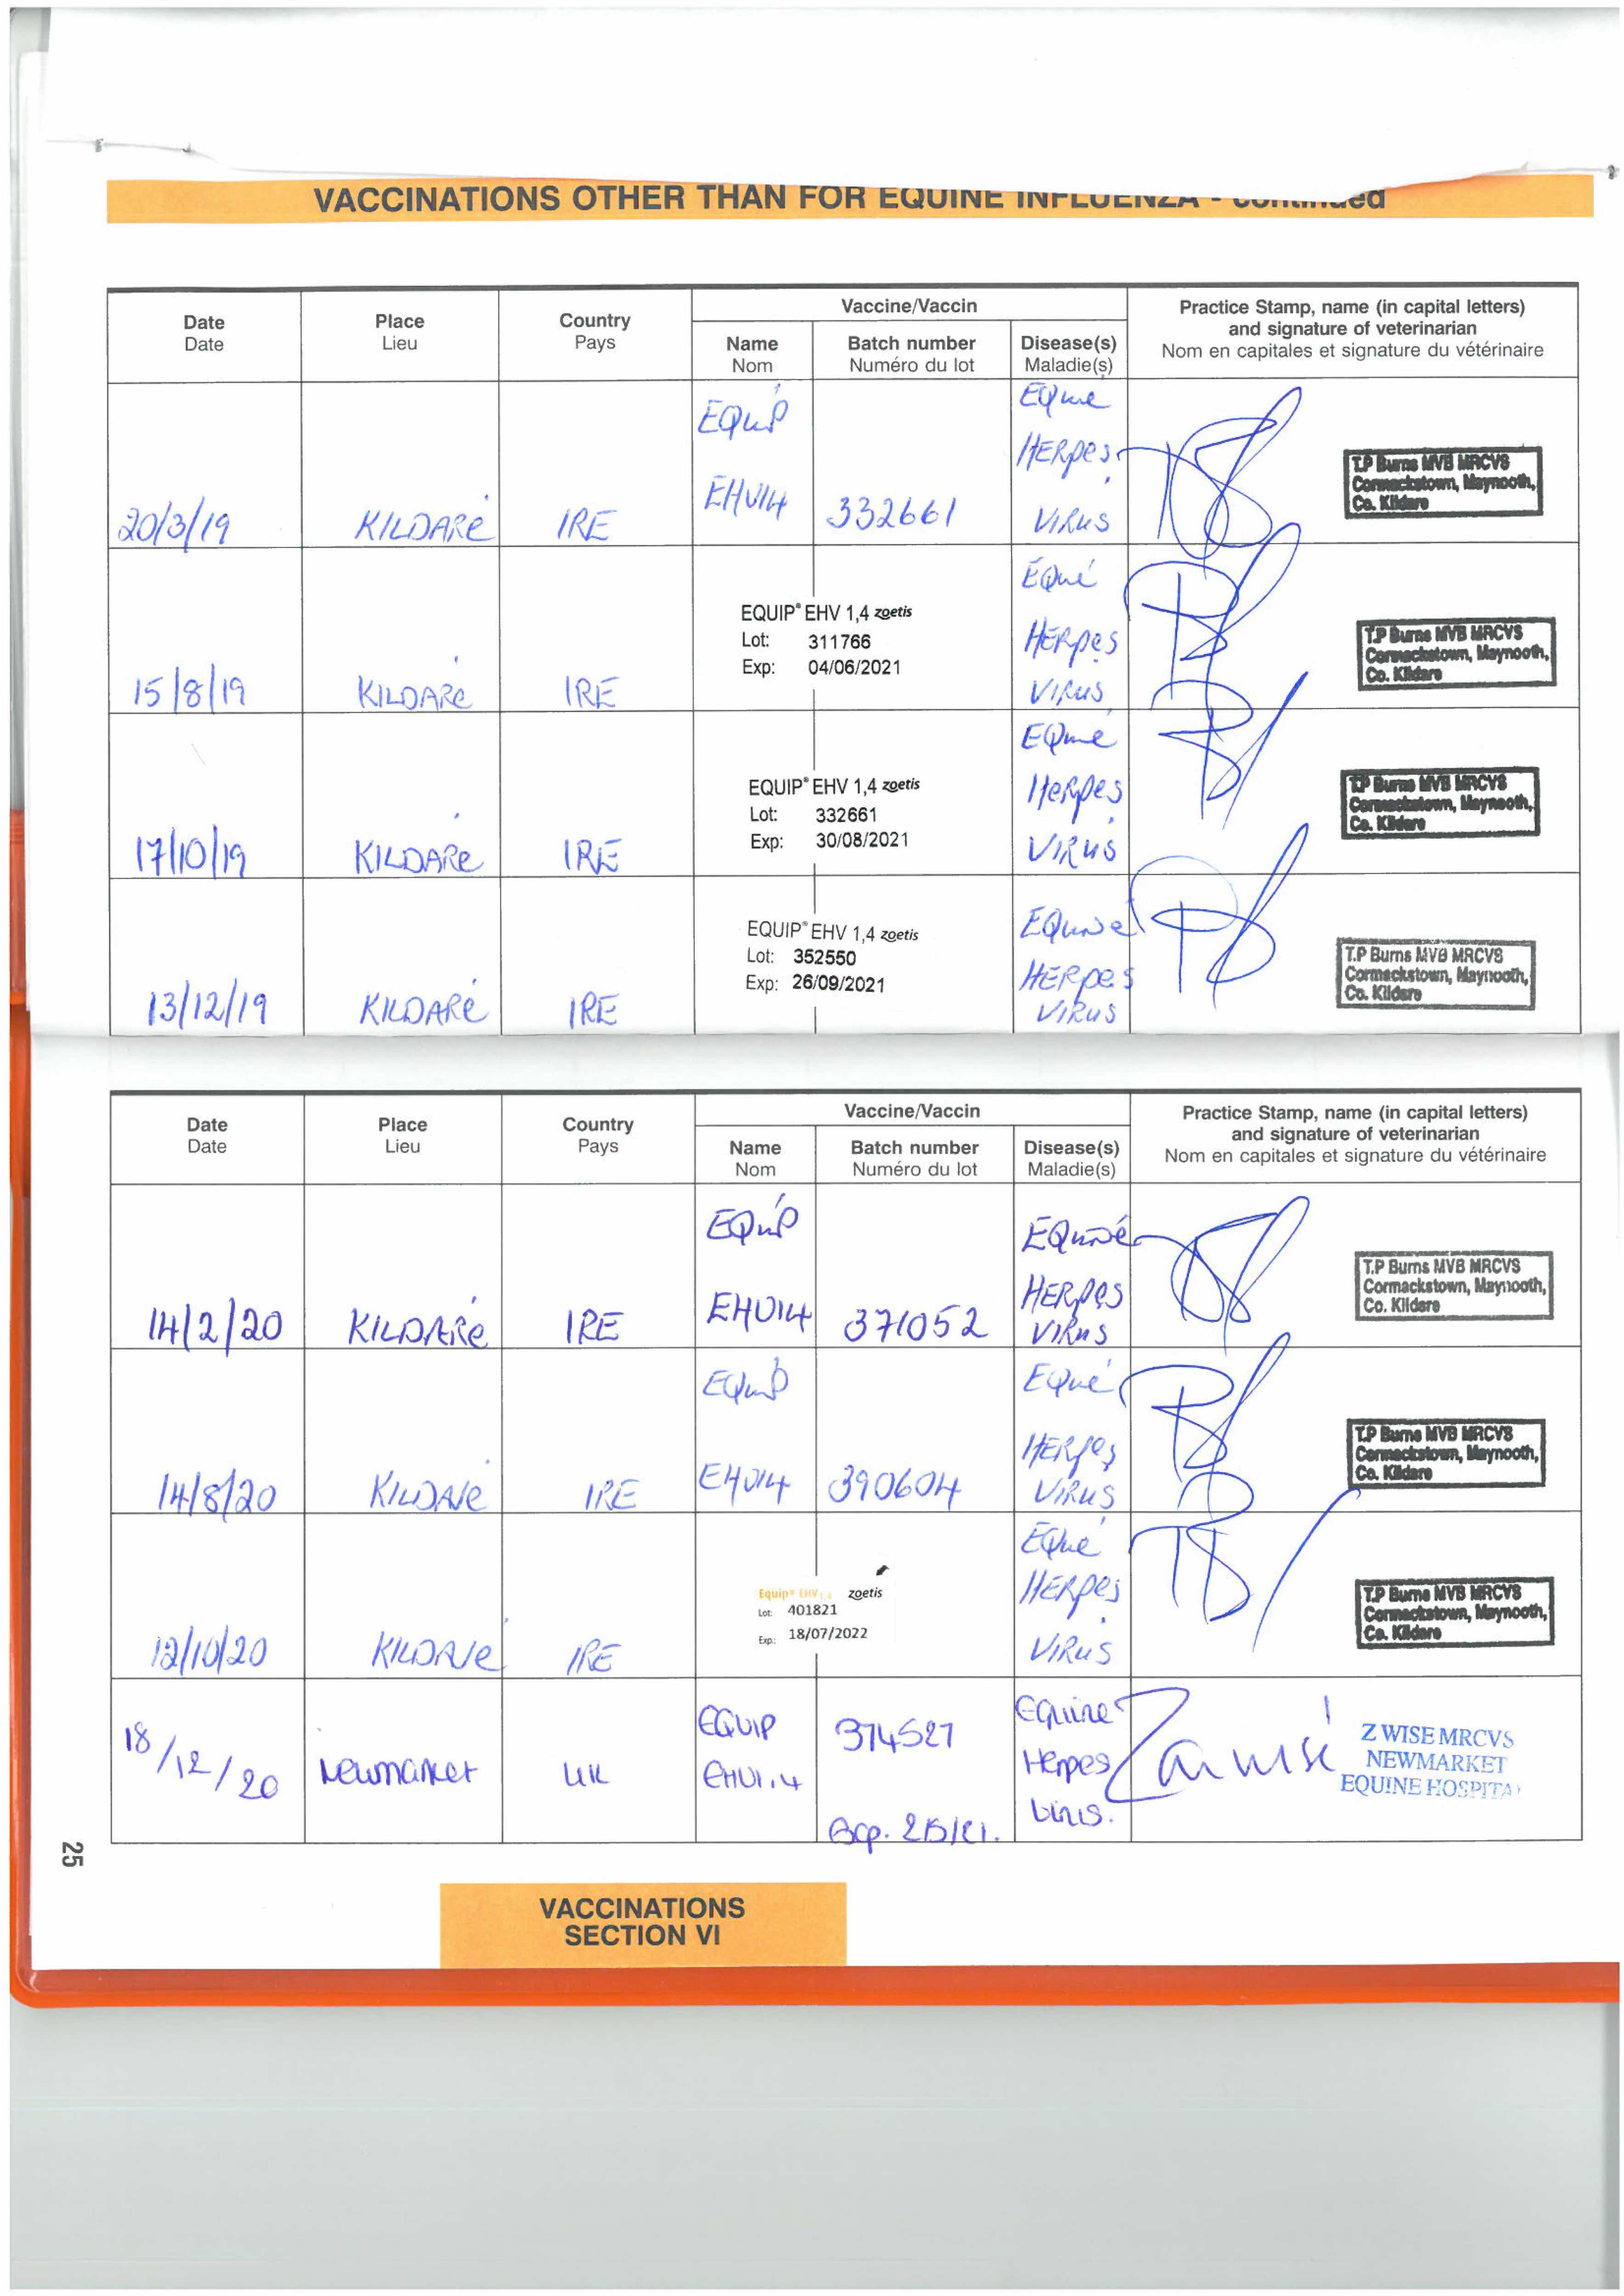 VACCINATIONS OTHER THAN FOR EQUINE INFLUENZA - continued
Date
Date
Place
Lieu
Country
Pays
Vaccine/Vaccin
Name
Nom
Batch number
Numéro du lot
Disease(s)
Maladie(s)
Practice Stamp, name (in capital letters)
and signature of veterinarian
Nom en capitales et signature du vétérinaire
20/3/19 KILDARE IRE
EQUIP
EHV14
332661
Equine
HERPES
VIRUS
T.P Burns MVB MRCVS
Cormackstown, Maynooth,
Co. Kildare
15/8/19 KILDARE IRE
EQUIP® EHV 1,4 zoetis
Lot: 311766
Exp: 04/06/2021
Equine
HERPES
VIRUS
T.P Burns MVB MRCVS
Cormackstown, Maynooth,
Co. Kildare
17/10/19 KILDARE IRE
EQUIP® EHV 1,4 zoetis
Lot: 332661
Exp: 30/08/2021
Equine
Herpes
VIRUS
T.P Burns MVB MRCVS
Cormackstown, Maynooth,
Co. Kildare
13/12/19 KILDARE IRE
EQUIP® EHV 1,4 zoetis
Lot: 352550
Exp: 26/09/2021
EQUINE
HERPES
VIRUS
T.P Burns MVB MRCVS
Cormackstown, Maynooth,
Co. Kildare
Date
Date
Place
Lieu
Country
Pays
Vaccine/Vaccin
Name
Nom
Batch number
Numéro du lot
Disease(s)
Maladie(s)
Practice Stamp, name (in capital letters)
and signature of veterinarian
Nom en capitales et signature du vétérinaire
14/2/20 KILDARE IRE
EQUIP
EHV14
371052
EQUINE
HERPES
VIRUS
T.P Burns MVB MRCVS
Cormackstown, Maynooth,
Co. Kildare
14/8/20 KILDARE IRE
EQUIP
EHV14
390604
Equine
HERPES
VIRUS
T.P Burns MVB MRCVS
Cormackstown, Maynooth,
Co. Kildare
12/10/20 KILDARE IRE
Equip® EHV 1,4 zoetis
Lot: 401821
Exp.: 18/07/2022
Equine
HERPES
VIRUS
T.P Burns MVB MRCVS
Cormackstown, Maynooth,
Co. Kildare
18/12/20 Newmarket UK
EQUIP
EHV1.4
374527
Equine
Herpes
Virus.
Z WISE MRCVS
NEWMARKET
EQUINE HOSPITAL
25
VACCINATIONS
SECTION VI